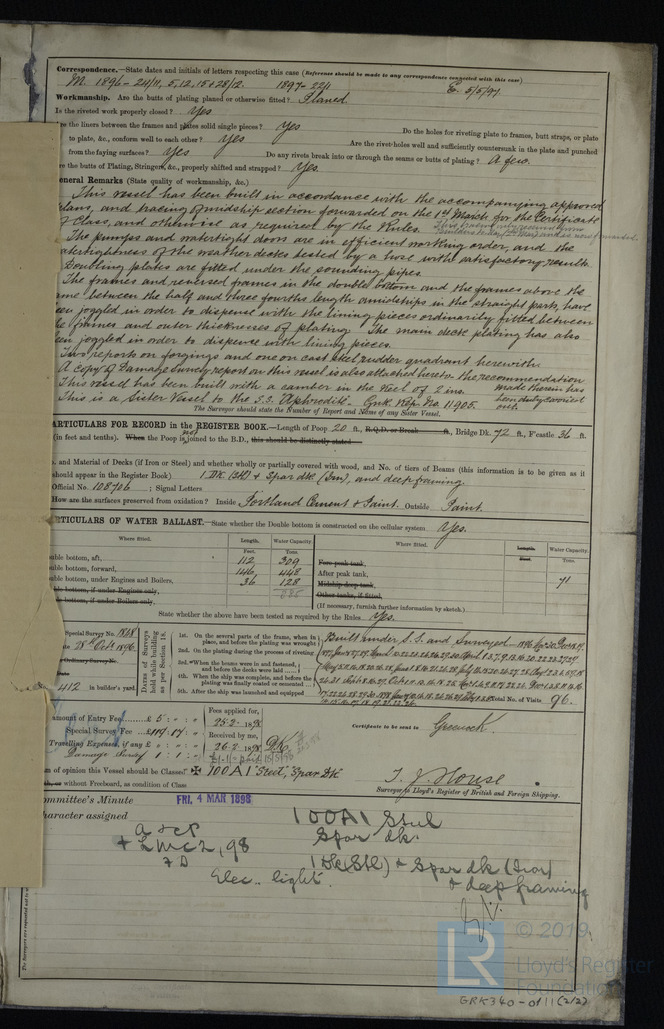 Correspondence.—State dates and initials of letters respecting this case (Reference should be made to any correspondence connected with this case)
M. 1896 - 24/11, 5,12,15 & 28/12. 1897 - 22/1 E. 5/5/97.
Workmanship. Are the butts of plating planed or otherwise fitted? Planed.
Is the riveted work properly closed? Yes
re the liners between the frames and plates solid single pieces? Yes Do the holes for riveting plate to frames, butt straps, or plate
to plate, &c., conform well to each other? Yes Are the rivet-holes well and sufficiently countersunk in the plate and punched
from the faying surfaces? Yes Do any rivets break into or through the seams or butts of plating? A few.
re the butts of Plating, Stringers, &c., properly shifted and strapped? Yes.
eneral Remarks (State quality of workmanship, &c.)
This vessel has been built in accordance with the accompanying approved
plans, and tracing of midship section forwarded on the 1st March for the Certificate
of Class, and otherwise as required by the Rules.
The pumps and watertight doors are in efficient working order, and the
watertightness of the weather decks tested by a hose with satisfactory results
Doubling plates are fitted under the sounding pipes.
The frames and reversed frames in the double bottom and the frames above the
same between the half and three fourths length amidships in the straight parts, have
been joggled in order to dispense with the lining pieces ordinarily fitted between
the frames and outer thicknesses of plating. The main deck plating has also
been joggled in order to dispense with lining pieces.
Two reports on forgings and one on cast steel rudder quadrant herewith.
A copy of Damage Survey report on this vessel is also attached hereto the recommendation
made therein has
This vessel has been built with a camber in the Keel of 2 ins.
been duly carried
out.
This is a Sister Vessel to the S.S. Aphrodite. Grnk. Rep. No. 11905.
The Surveyor should state the Number of Report and Name of any Sister Vessel.
ARTICULARS FOR RECORD in the REGISTER BOOK.—Length of Poop 20 ft., R.Q.D. or Break ft., Bridge Dk. 72 ft., F'castle 36 ft.
(in feet and tenths). When the Poop is not joined to the B.D., this should be distinctly stated
. and Material of Decks (if Iron or Steel) and whether wholly or partially covered with wood, and No. of tiers of Beams (this information is to be given as it
should appear in the Register Book) 1 Dk (Stl) & Spar dk (Irn), and deep framing.
Official No. 108706 ; Signal Letters
How are the surfaces preserved from oxidation? Inside Portland Cement & Paint. Outside Paint.
RTICULARS OF WATER BALLAST.—State whether the Double bottom is constructed on the cellular system Yes.
Where fitted. Length. Water Capacity. Where fitted. Length. Water Capacity.
Feet. Tons. Feet. Tons.
ouble bottom, aft, 112 309 Fore peak tank,
ouble bottom, forward, 146 448 After peak tank, 71
ouble bottom, under Engines and Boilers, 36 128 Midship deep tank,
le bottom, if under Engines only, 885 Other tanks, if fitted,
le bottom, if under Boilers only, (If necessary, furnish further information by sketch.)
State whether the above have been tested as required by the Rules Yes.
Special Survey No. 1868
te 28 Oct 1896
Ordinary Survey No.
Date
412 in builder's yard.
DATES of Surveys held while building as per Section 18.
1st. On the several parts of the frame, when in place, and before the plating was wrought
2nd. On the plating during the process of riveting
3rd. When the beams were in and fastened, and before the decks were laid
4th. When the ship was complete, and before the plating was finally coated or cemented
5th. After the ship was launched and equipped
Built under S.S. and Surveyed
Total No. of Visits 96.
amount of Entry Fee £ 5 : „ : „
Special Survey Fee £119 : 17 : „
Travelling Expenses, if any £ „ : „ : „
Damage Survey 1 : 1 : „
Fees applied for,
25.2.1898
Received by me,
26.2.1898
Certificate to be sent to Greenock.
am of opinion this Vessel should be Classed ✠ 100A1 "Steel," Spar Dk
without Freeboard, as condition of Class
T. J. House
Surveyor to Lloyd's Register of British and Foreign Shipping.
ommittee's Minute FRI. 4 MAR 1898
haracter assigned 100A1 Steel
Spar dk.
a & c P
+ LMC 2,98
1 Dk (Stl) & Spar dk (Iron)
& deep framing
Elec. light.
© 2019
LR
Lloyd's Register
Foundation
GRK340-0111(2/2)